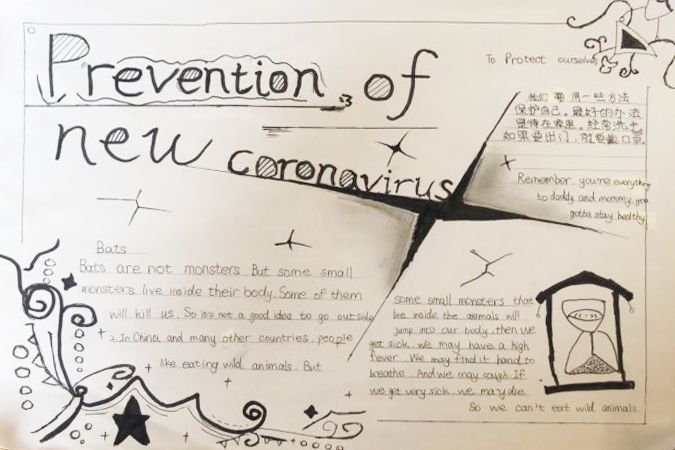 Prevention of
new coronavirus
To Protect ourselves
我们要用一些方法
保护自己。最好的办法
是待在家里。经常洗手
如果要出门，就要戴口罩
Remember you're everything
to daddy and mommy you
gotta stay healthy
Bats
Bats are not monsters. But some small
monsters live inside their body. Some of them
will kill us. So it's not a good idea to go outside
2. In China and many other countries, people
like eating wild animals. But
some small monsters that
live inside the animals will
jump into our body, then we
get sick. we may have a high
fever. We may find it hard to
breathe. And we may cough. If
we get very sick, we may dies.
So we can't eat wild animals.